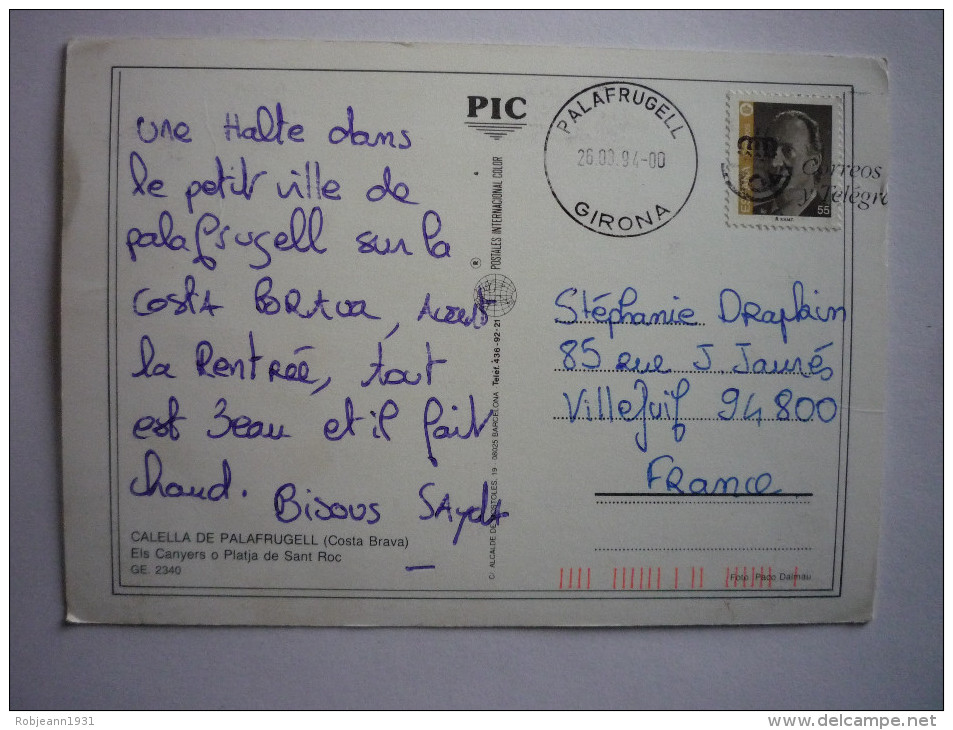 une Halte dans
le petit ville de
palafrugell sur la
Costa BORAva, Avant
la Rentrée, tout
est Beau et il fait
chaud. Bisous SAyda
CALELLA DE PALAFRUGELL (Costa Brava)
Els Canyers o Platja de Sant Roc
GE. 2340
PIC
POSTALES INTERNACIONAL COLOR
®
© ALCALDE DE MOSTOLES, 19 - 08025 BARCELONA Teléf. 436-92-21
PALAFRUGELL
26.09.94-00
GIRONA
ESPAÑA
55
Correos
y Telégr
Stéphanie Draplain
85 rue J. Jaurés
Villejuif 94800
France
Foto: Paco Dalmau
Robjeann1931
www.delcampe.net